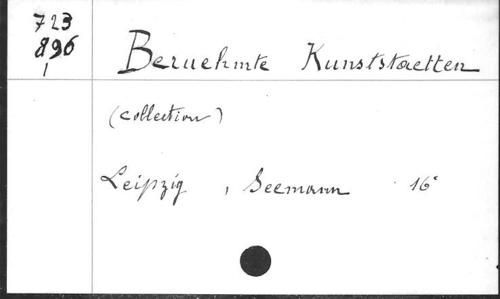 723
896
1
Beruehmte Kunststaetten
(collection)
Leipzig , Seemann 16°